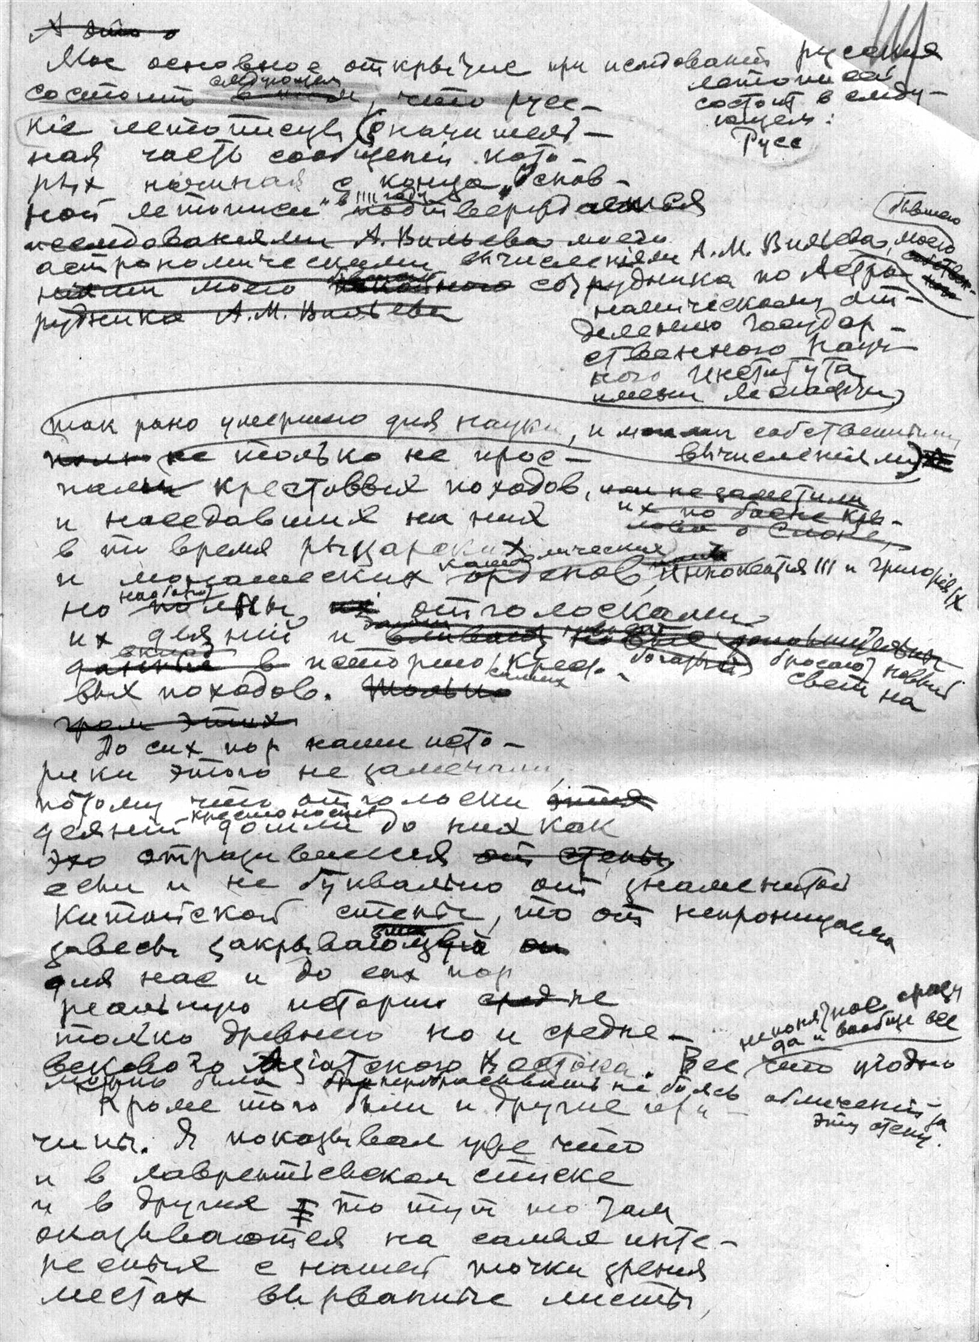 А это
Мое основное открытие при исследовании русских
летописей
состоит в следу-
ющем:
Русс
состоит следующем, что рус-
кие летописцы (значитель-
ная часть сообщений кото-
рых начиная с конца „Основ-
ной летописи" в 1111 году подтверждается
исследованиями А. Вильева моего
астрономическими вычислениями А. М. Вильева, моего
бывшего
ниями моего покойного сотрудника по Астро-
номическому от-
делению Государ-
ственного Науч-
ного Института
имени Лесгафта)
рудника А. М. Вильева
так рано умершего для науки, и моими собственными
вычислениями)
не только не прос-
пали крестовых походов, или не заметили
их по басне Кры-
лова о Слоне,
и наседавших на них
в то время рыцарских
и монашеских католических орденов, Иннокентия III и Григория IX
но наоборот полны отголосками
их деяний и
данные в историю Кресто-
бросают новый
свет на
самих
вых походов. Только
гром этих
До сих пор наши исто-
рики этого не замечали,
потому что отголоски этих
деяний крестоносцев дошли до них как
эхо отразившееся от стены
если и не буквально от знаменитой
Китайской стены, то от непроницаемой
завесы закрывающей
для нас и до сих пор
реальную историю не
только древнего но и средне-
векового Азиатского Востока. Все что угодно
непонятное сразу
да и вообще все
можно было перебрасывать не боясь обличений за
эту стену.
Кроме того были и другие при-
чины. Я показывал уже что
и в лаврентьевском списке
и в других то тут то там
оказываются на самых инте-
ресных с нашей точки зрения
местах вырванные листы,